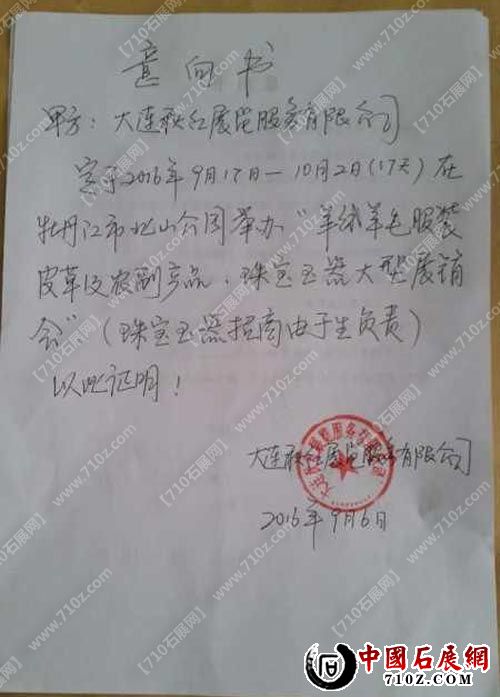 意向书
甲方：大连秋红展览服务有限公司
定于2016年9月17日—10月2日(17天)在
牡丹江市北山公园举办“羊绒羊毛服装
皮革及农副产品、珠宝玉器大型展销
会”(珠宝玉器招商由于生负责)
以此证明！
大连秋红展览服务有限公司
2016年9月6日
【710石展网】www.710z.com
中國石展網
710Z.COM